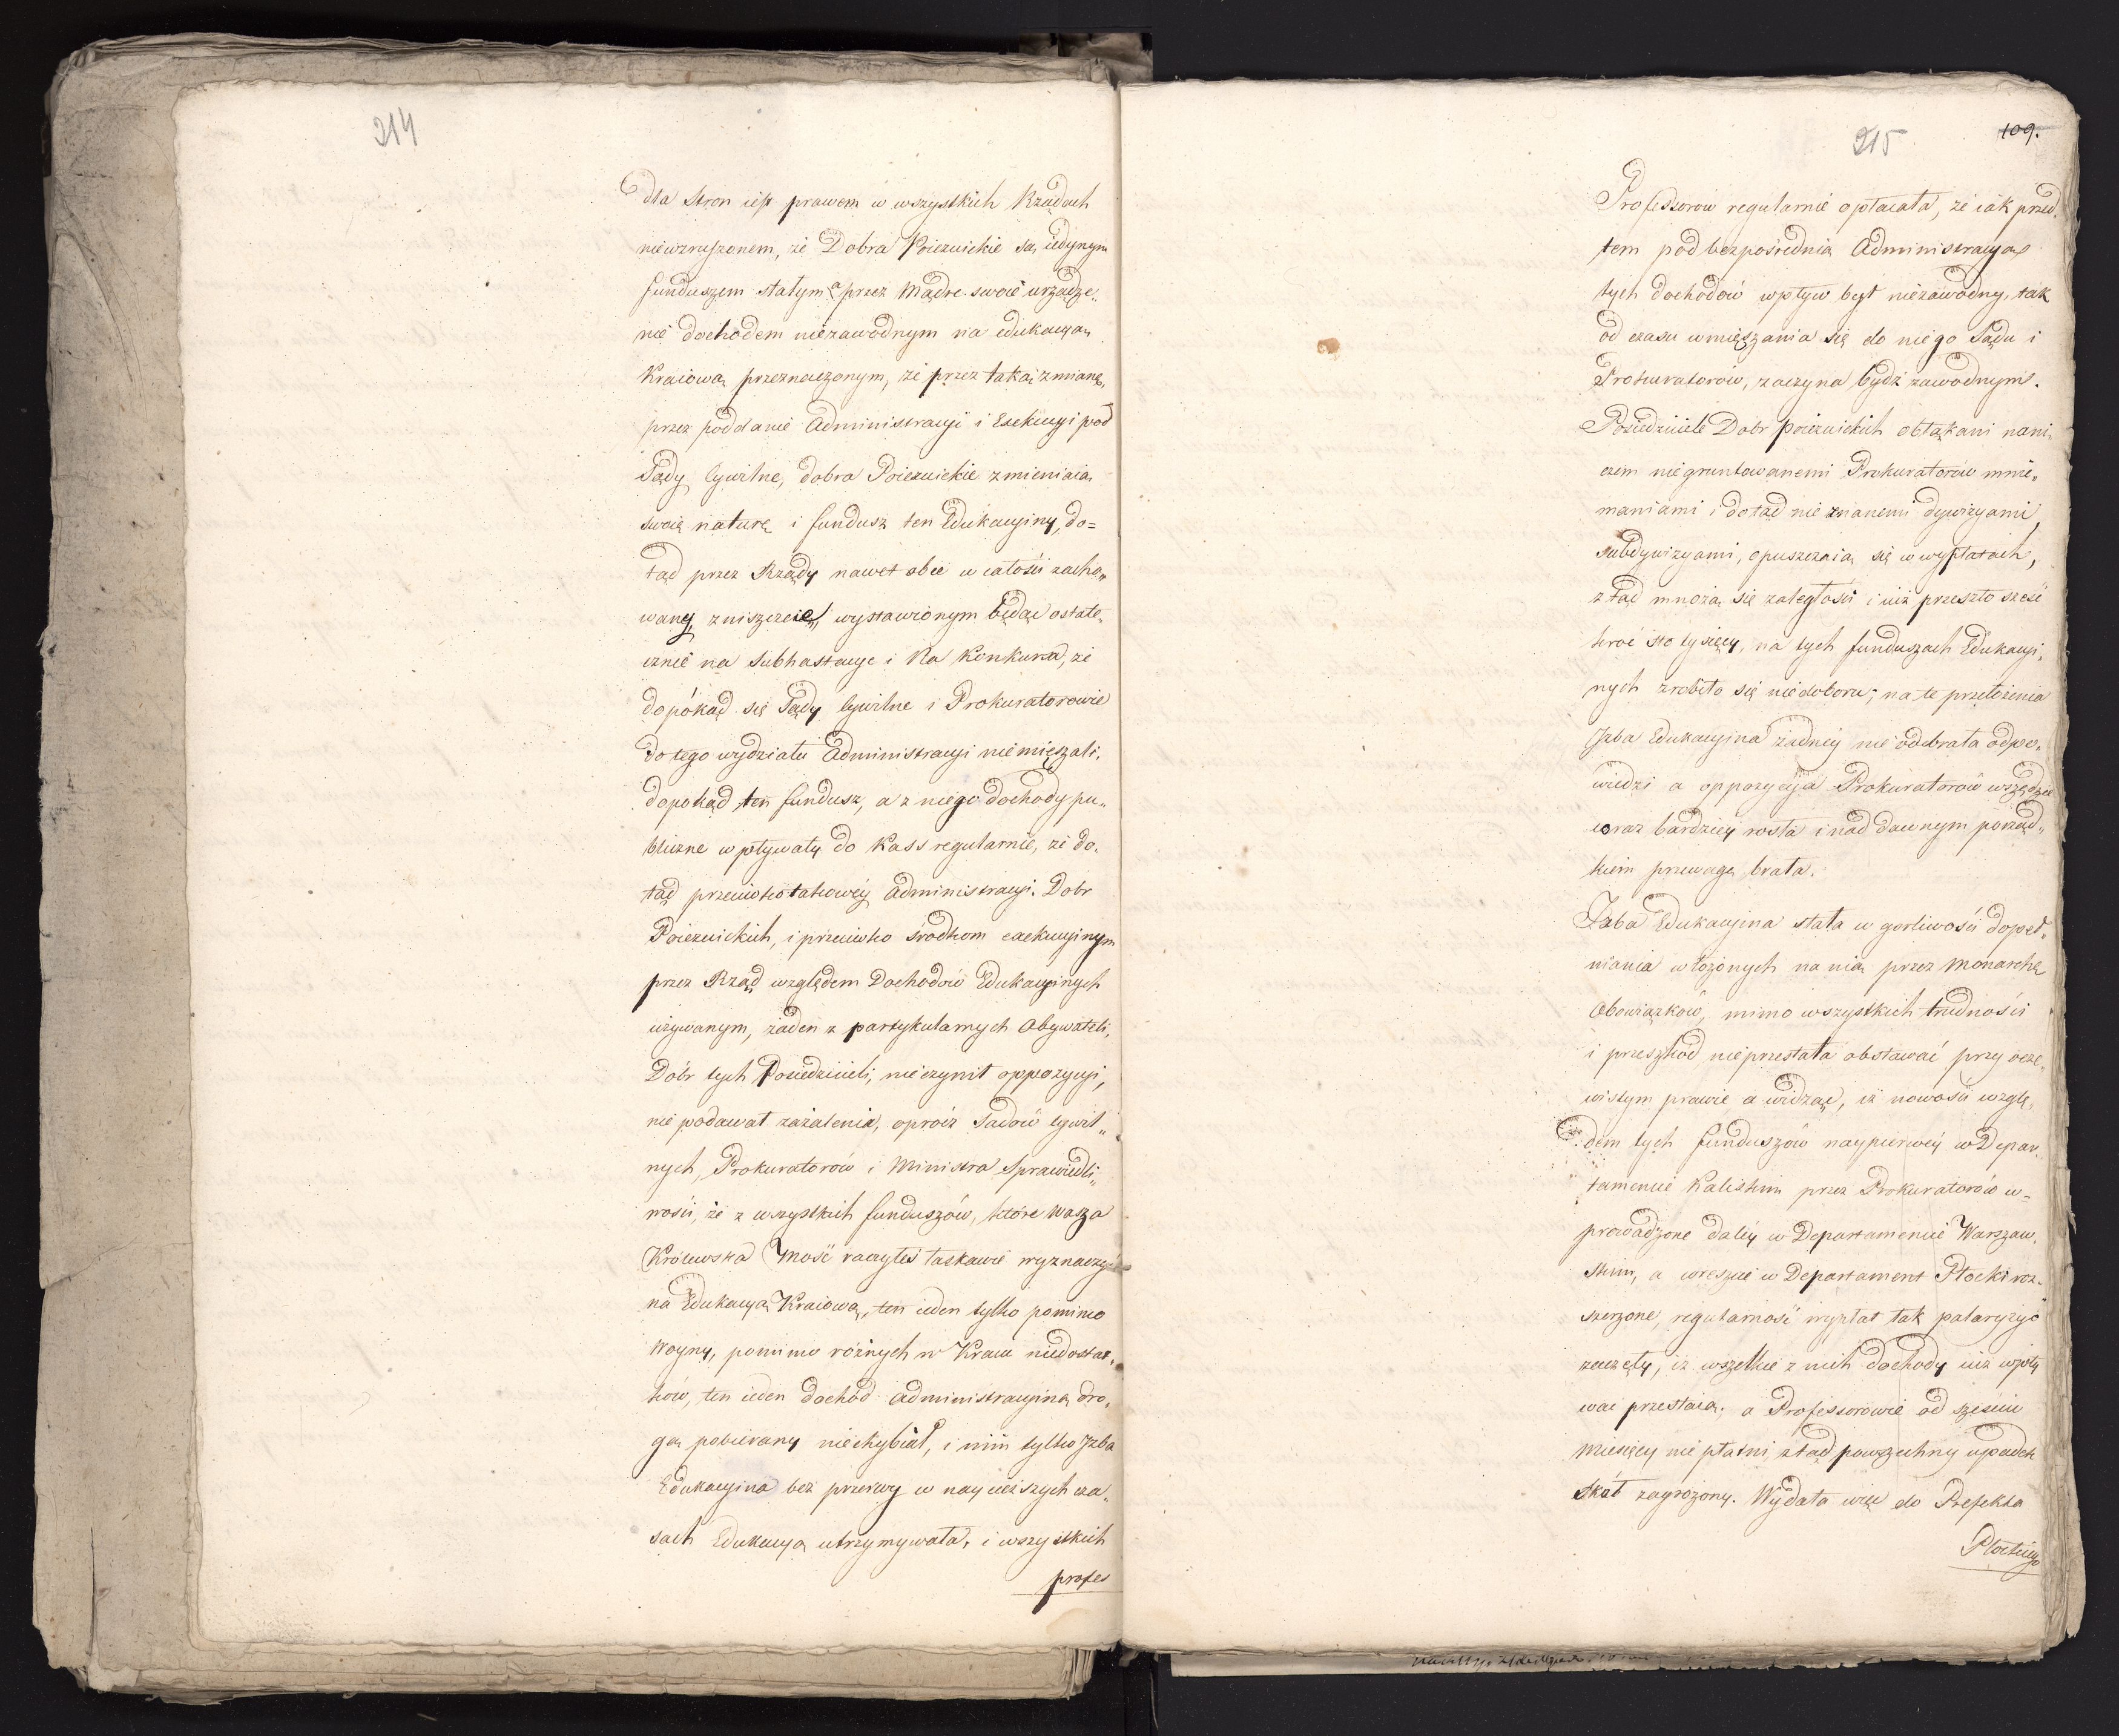 214
dla stron iest prawem w wszystkich Rządach
niewzruszonem, że Dobra Poiezuickie są iedynym
funduszem stałym a przez Mądre swoie urządze„
nie dochodem niezawodnym na edukacyą
Kraiową przeznaczonym, że przez taką zmianę,
przez poddanie Administracyi i Exekucyi pod
Sądy Cywilne, dobra Poiezuickie zmieniaią
swoię naturę i fundusz ten Edukacyiny, do=
tąd przez Rządy nawet obce w całości zacho„
wany, zniszczeie, wystawionym będąc ostate„
cznie na Subhastacye i Na Konkursa, że
dopókąd się Sądy Cywilne i Prokuratorowie
do tego wydziału Administracyi nie mięszali,
dopokąd ten fundusz, a z niego dochody pu„
bliczne wpływały do Kass regularnie, że do„
tąd przeciwko takowéy administracyi Dobr
Poiezuickich, i przeciwko środkom exekucyinym
przez Rząd względem Dochodów Edukacyinych
używanym, żaden z partykularnych Obywateli,
Dóbr tych Posiedzicieli, nie czynił oppozycyi,
nie podawał zażalenia, oprócz Sądów Cywil„
nych, Prokuratorów i Ministra Sprawiedli„
wości, że z wszystkich funduszów, które Wasza
Królewska Mość raczyłeś łaskawie wyznaczyć
na Edukacyą Kraiową, ten ieden tylko pomimo
Woyny, pomimo różnych w Kraiu niedostat„
ków, ten ieden dochód administracyiną dro„
gą pobierany niechybiał, i nim tylko Izba
Edukacyina bez przerwy w naycięższych cza„
sach Edukacyą utrzymywała, i wszystkich
profes
215
109.
Professorow regularnie opłacała, że iak przed„
tem pod bezpośrednią Administracyą
tych dochodów wpływ był niezawodny, tak
od czasu wmięszania się do niego Sądu i
Prokuratorów, zaczyna bydź zawodnym.
Posiedziciele Dobr poiezuickich obłąkani nani„
czem niegruntowanemi Prokuratorów mnie„
maniami i dotąd nie znanemi dywizyami,
subdywizyami, opuszczaią się w wypłatach,
ztąd mnożą się zaległości i iuż przeszło sześć
kroć sto tysięcy, na tych funduszach Edukacyi„
nych zrobiło się niedoboru; na te przełożenia
Izba Edukacyina żadnéy nie odebrała odpo„
wiedzi a oppozycyja Prokuratorów wszędzie
coraz bardziey rosła i nad dawnym porząd„
kiem przewagę brała.
Izba Edukacyina stała w gorliwości dopeł„
niania włożonych na nią przez Monarchę
Obowiązków, mimo wszystkich trudności
i przeszkód nieprzestała obstawać przy oczy„
wistym prawie a widząc, iż nowości wzglę„
dem tych funduszów naypierwéy w Depar„
tamencie Kaliskim przez Prokuratorów w=
prowadzone daléy w Departamencie Warszaw„
skim, a wreszcie w Departament Płocki roz„
szerzone, regularność wypłat tak
zaczęły, iż wszelkie z nich dochody iuż wpły
wać przestaią, a Professorowie od sześciu
Miesięcy nie płatni, ztąd powszechny upadek
szkół zagrożony. Wydała więc do Prefekta
Płockiego